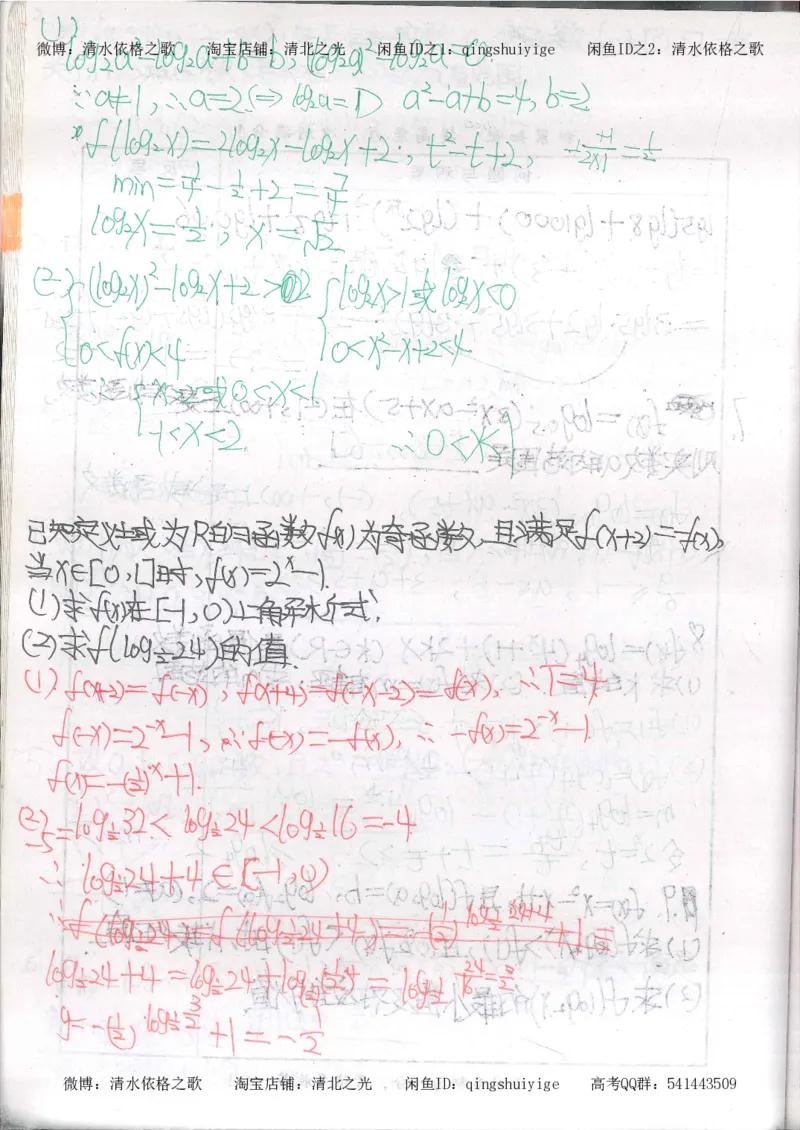 (1)
微博：清水依格之歌 淘宝店铺：清北之光 闲鱼ID之1：qingshuiyige 闲鱼ID之2：清水依格之歌
log₂a²-log₂a+b=b, (log₂a)²-log₂a=0.
∵a≠1, ∴a=2(⇒log₂a=1) a²-a+b=4, b=2
f(log₂x)=2log₂x-log₂x+2, t²-t+2, -\frac{-1}{2×1}=\frac{1}{2}
min=\frac{1}{4}-\frac{1}{2}+2=\frac{7}{4}
log₂x=\frac{1}{2}, x=√2
(2){(log₂x)²-log₂x+2>2 {log₂x>1或log₂x<0
0<f(x)<4 0<x²-x+2<4
{x>2或0<x<1
-1<x<2. ∴0<x<1
已知定义域为R的函数f(x)为奇函数,且满足f(x+2)=-f(x),
当x∈[0,1]时,f(x)=2ˣ-1.
(1)求f(x)在[-1,0)上解析式;
(2)求f(log_{\frac{1}{2}}24)的值.
(1). f(x+2)=f(-x), f(x+4)=f(-x-2)=f(x), ∴T=4
f(-x)=2⁻ˣ-1, ∵f(-x)=-f(x), ∴-f(x)=2⁻ˣ-1.
f(x)=-(\frac{1}{2})ˣ+1.
(2)-5=log_{\frac{1}{2}}32<log_{\frac{1}{2}}24<log_{\frac{1}{2}}16=-4
∴log_{\frac{1}{2}}24+4∈[-1,0)
log_{\frac{1}{2}}24+4=log_{\frac{1}{2}}24+log_{\frac{1}{2}}(\frac{1}{2})⁴=log_{\frac{1}{2}}\frac{24}{16}=\frac{3}{2}
y=-(\frac{1}{2})^{log_{\frac{1}{2}}\frac{3}{2}}+1=-\frac{1}{2}
微博：清水依格之歌 淘宝店铺：清北之光 闲鱼ID：qingshuiyige 高考QQ群：541443509